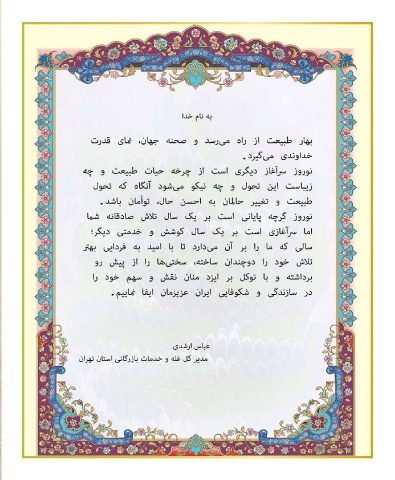 به نام خدا
بهار طبیعت از راه می‌رسد و صحنه جهان، نمای قدرت
خداوندی می‌گیرد.
نوروز سرآغاز دیگری است از چرخه حیات طبیعت و چه
زیباست این تحول و چه نیکو می‌شود آنگاه که تحول
طبیعت و تغییر حالمان به احسن حال، توأمان باشد.
نوروز گرچه پایانی است بر یک سال تلاش صادقانه شما
اما سرآغازی است بر یک سال کوشش و خدمتی دیگر؛
سالی که ما را بر آن می‌دارد تا با امید به فردایی بهتر
تلاش خود را دوچندان ساخته، سختی‌ها را از پیش رو
برداشته و با توکل بر ایزد منان نقش و سهم خود را
در سازندگی و شکوفایی ایران عزیزمان ایفا نماییم.
عباس ارشدی
مدیر کل غله و خدمات بازرگانی استان تهران